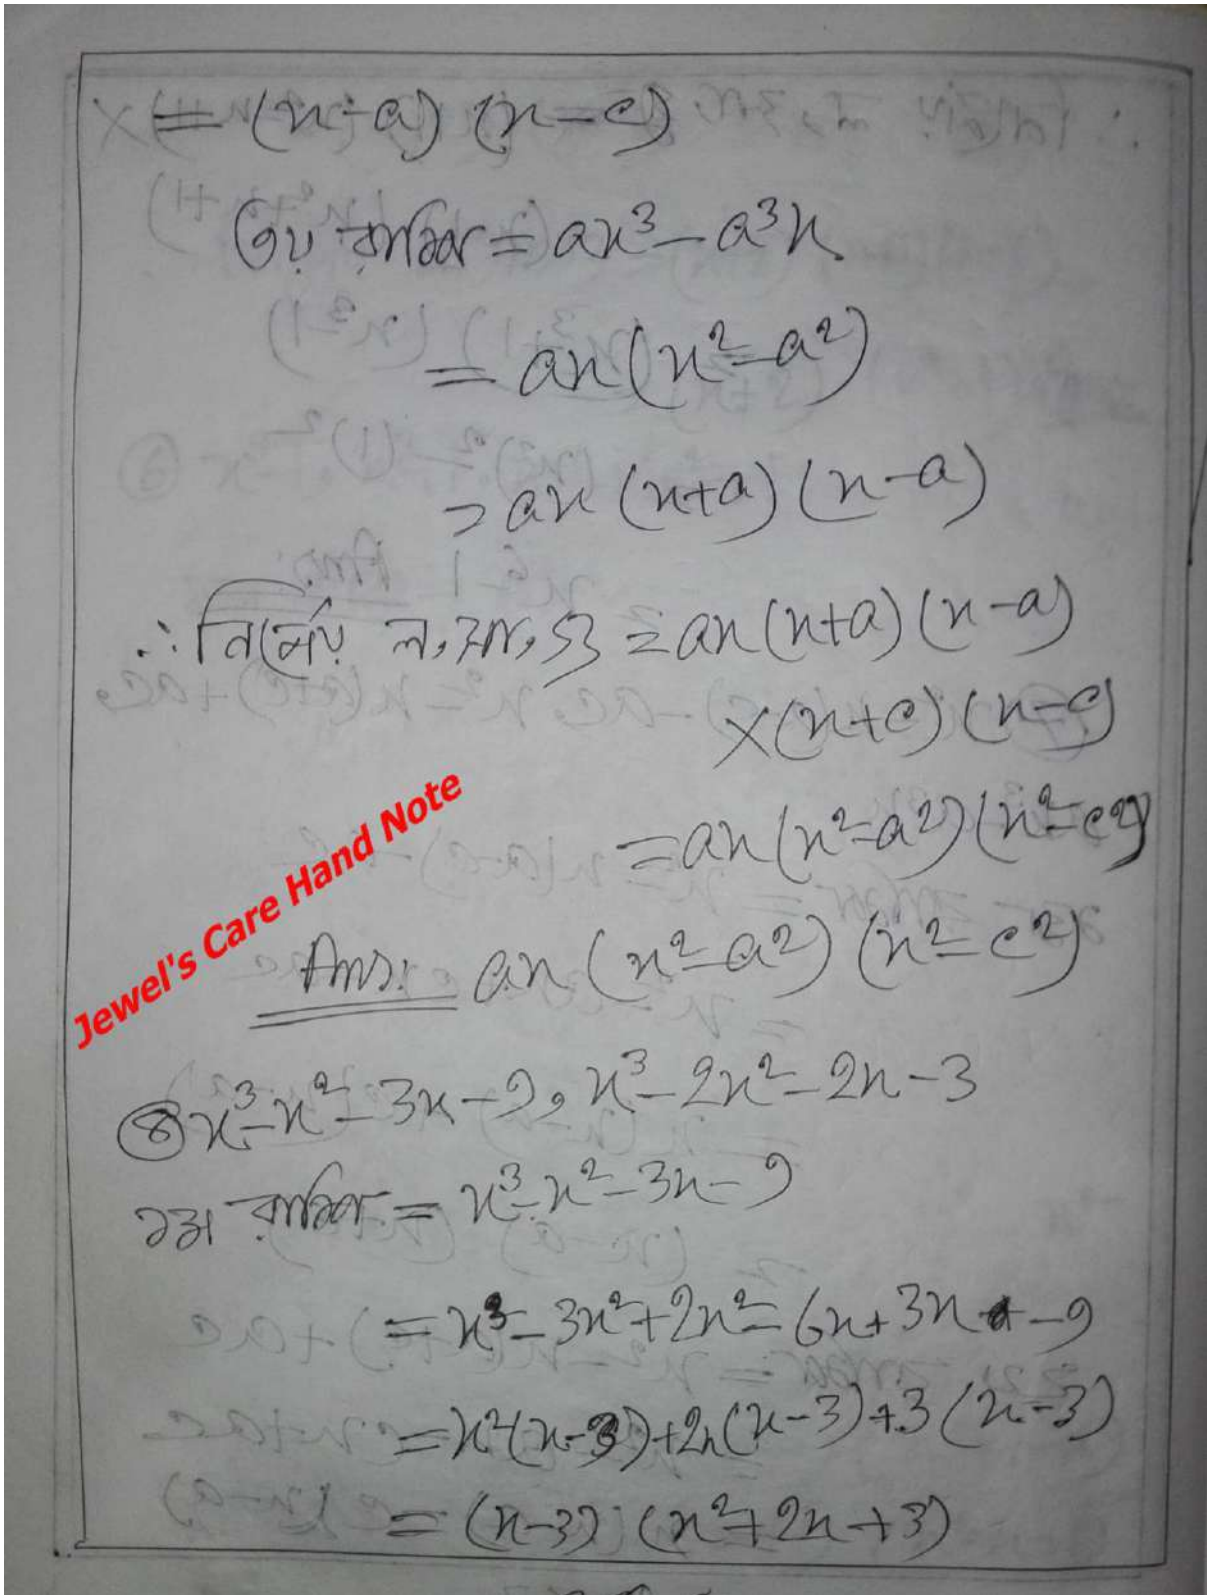 = (x-a) (x-c)
৩য় রাশি = ax³ - a³x
= ax(x² - a²)
= ax (x+a) (x-a)
∴ নির্ণেয় ল,সা,গু = ax(x+a) (x-a)
×(x+c) (x-c)
= ax(x²-a²) (x²-c²)
Jewel's Care Hand Note
Ans: ax (x²-a²) (x²-c²)
④ x³-x²-3x-9, x³-2x²-2x-3
১ম রাশি = x³-x²-3x-9
= x³-3x²+2x²-6x+3x-9
= x²(x-3)+2x(x-3)+3(x-3)
= (x-3) (x²+2x+3)